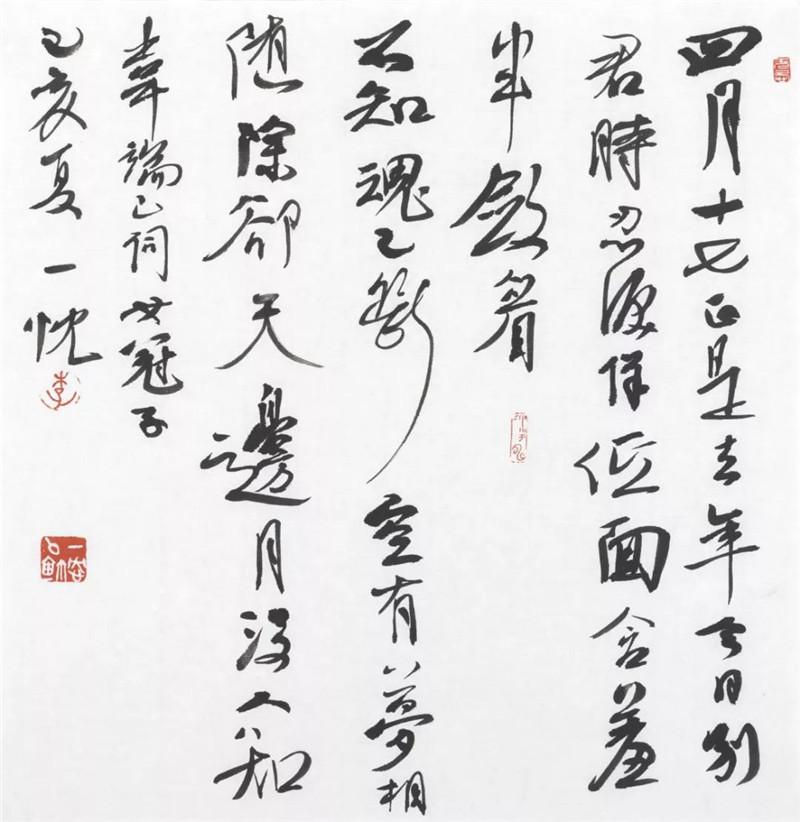 四月十七正是去年今日别
君時忍淚佯低面含羞
半斂眉
不知魂已斷空有夢相
随除卻天邊月没人知
韋端己詞女冠子
己亥夏一忱
李